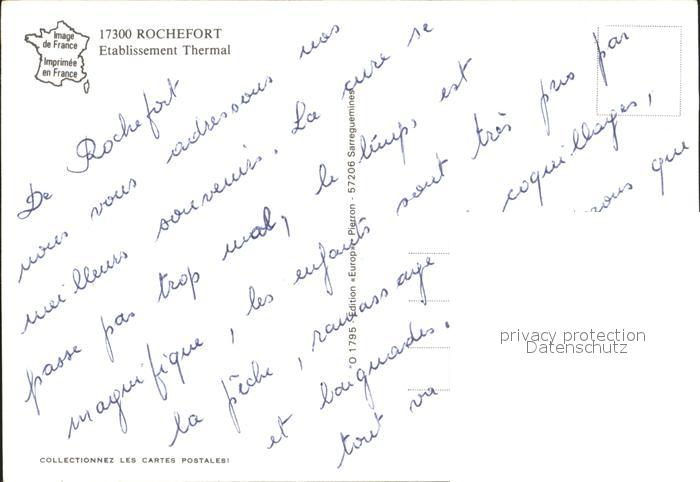 Image
de France
Imprimée
en France
17300 ROCHEFORT
Etablissement Thermal
De Rochefort
nous vous adressons nos
meilleurs souvenirs. La cure se
passe pas trop mal, le temps est
magnifique, les enfants sont très pris par
la pêche, ramassage coquillages,
et baignades. que
tout va
Edition «Europ» Pierron - 57206 Sarreguemines
privacy protection
Datenschutz
COLLECTIONNEZ LES CARTES POSTALES!